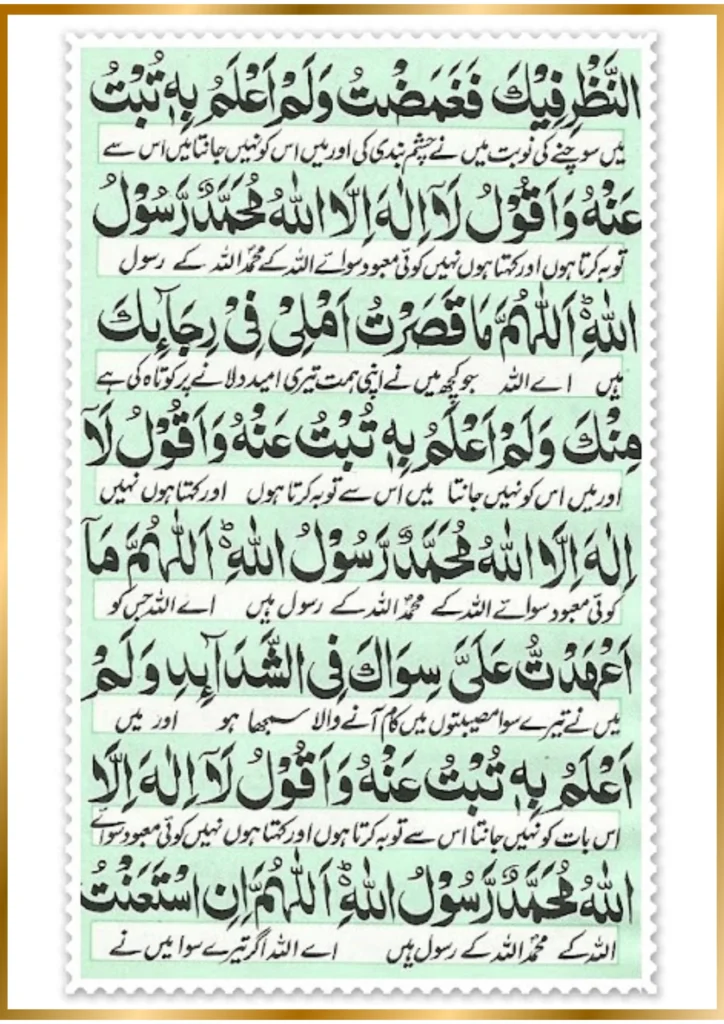 النَّظْرِ فِيْكَ فَغَمَضْتُ وَلَمْ اَعْلَمُ بِهٖ تُبْتُ
میں سوچنے کی نوبت میں نے چشم بندی کی اور میں اس کو نہیں جانتا میں اس سے
عَنْهُ وَاَقُوْلُ لَآ اِلٰهَ اِلَّا اللهُ مُحَمَّدٌ رَّسُوْلُ
توبہ کرتا ہوں اور کہتا ہوں نہیں کوئی معبود سوائے اللہ کے محمدؐ اللہ کے رسول
اللهِؕ اَللّٰهُمَّ مَا قَصَرْتُ اَمْلِیْ فِیْ رِجَآئِكَ
ہیں اے اللہ جو کچھ میں نے اپنی ہمت تیری امید دلانے پر کوتاہ کی ہے
مِنْكَ وَلَمْ اَعْلَمُ بِهٖ تُبْتُ عَنْهُ وَاَقُوْلُ لَآ
اور میں اس کو نہیں جانتا میں اس سے توبہ کرتا ہوں اور کہتا ہوں نہیں
اِلٰهَ اِلَّا اللهُ مُحَمَّدٌ رَّسُوْلُ اللهِؕ اَللّٰهُمَّ مَآ
کوئی معبود سوائے اللہ کے محمدؐ اللہ کے رسول ہیں اے اللہ جس کو
اَعْهَدْتُّ عَلَیَّ سِوَاكَ فِی الشَّدَآئِدِ وَلَمْ
میں نے تیرے سوا مصیبتوں میں کام آنے والا سمجھا ہو اور میں
اَعْلَمُ بِهٖ تُبْتُ عَنْهُ وَاَقُوْلُ لَآ اِلٰهَ اِلَّا
اس بات کو نہیں جانتا اس سے توبہ کرتا ہوں اور کہتا ہوں نہیں کوئی معبود سوائے
اللهُ مُحَمَّدٌ رَّسُوْلُ اللهِؕ اَللّٰهُمَّ اِنِ اسْتَعَنْتُ
اللہ کے محمدؐ اللہ کے رسول ہیں اے اللہ اگر تیرے سوا میں نے